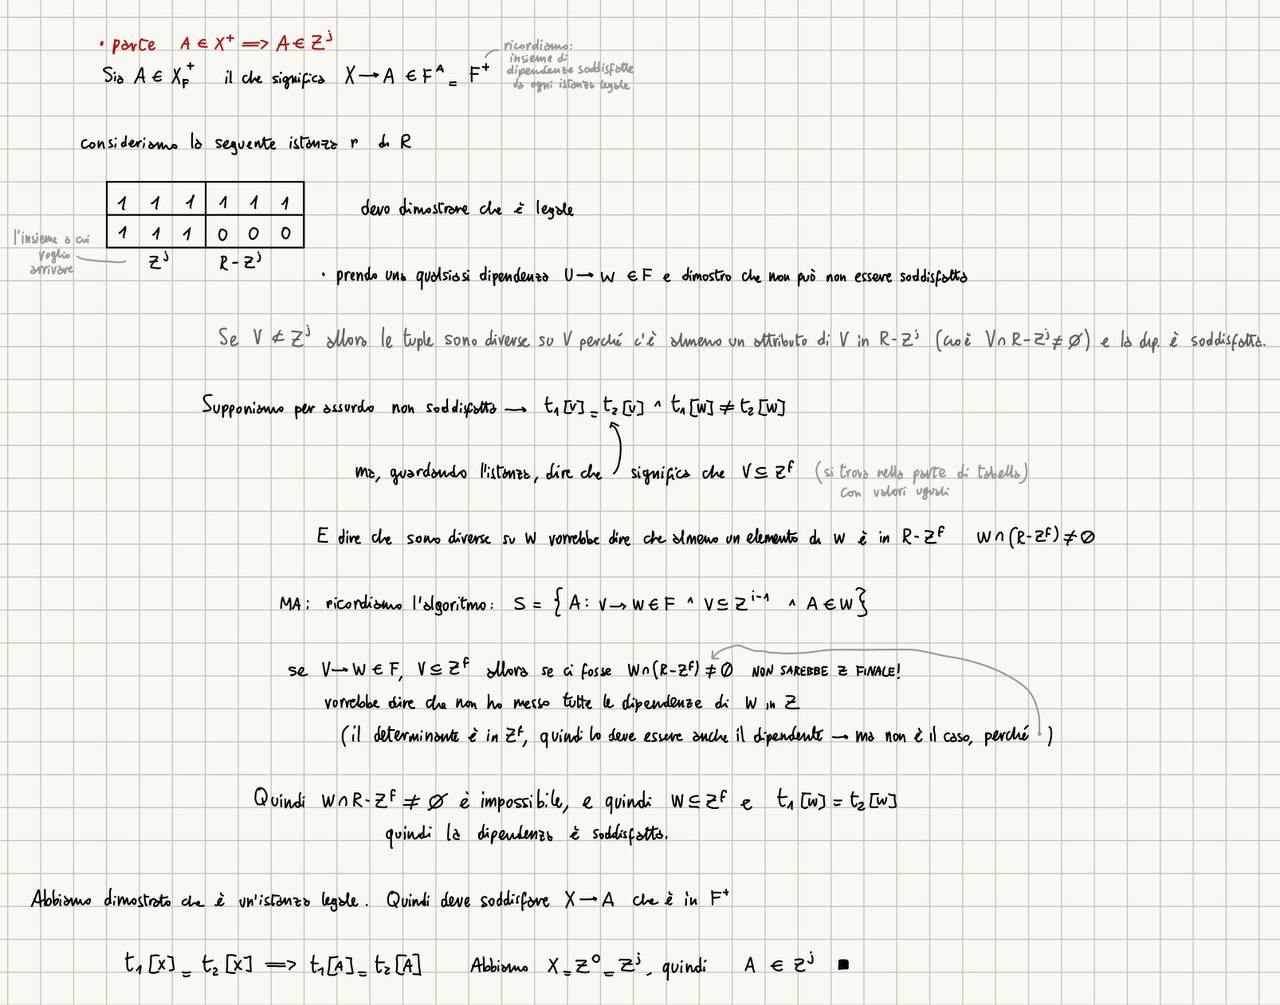 • parte A ∈ X⁺ => A ∈ Zʲ
Sia A ∈ X_F⁺ il che significa X → A ∈ Fᴬ = F⁺
ricordiamo:
insieme di
dipendenze soddisfatte
da ogni istanza legale
consideriamo la seguente istanza r di R
1 1 1 1 1 1
1 1 1 0 0 0
Zʲ R-Zʲ
l'insieme a cui
voglio
arrivare
devo dimostrare che è legale
• prendo una qualsiasi dipendenza U → W ∈ F e dimostro che non può non essere soddisfatta
Se V ⊄ Zʲ allora le tuple sono diverse su V perché c'è almeno un attributo di V in R-Zʲ (cioè V∩R-Zʲ≠∅) e la dip. è soddisfatta.
Supponiamo per assurdo non soddisfatta → t₁[V] = t₂[V] ^ t₁[W] ≠ t₂[W]
ma, guardando l'istanza, dire che significa che V ⊆ Zᶠ (si trova nella parte di tabella)
con valori uguali
E dire che sono diverse su W vorrebbe dire che almeno un elemento di W è in R-Zᶠ W∩(R-Zᶠ)≠∅
MA: ricordiamo l'algoritmo: S = {A: V → W ∈ F ^ V ⊆ Zⁱ⁻¹ ^ A ∈ W}
se V → W ∈ F, V ⊆ Zᶠ allora se ci fosse W∩(R-Zᶠ) ≠ ∅ NON SAREBBE Z FINALE!
vorrebbe dire che non ho messo tutte le dipendenze di W in Z
(il determinante è in Zᶠ, quindi lo deve essere anche il dipendente → ma non è il caso, perché )
Quindi W∩R-Zᶠ ≠ ∅ è impossibile, e quindi W ⊆ Zᶠ e t₁[W] = t₂[W]
quindi la dipendenza è soddisfatta.
Abbiamo dimostrato che è un'istanza legale. Quindi deve soddisfare X → A che è in F⁺
t₁[X] = t₂[X] => t₁[A] = t₂[A] Abbiamo X = Z⁰ = Zʲ, quindi A ∈ Zʲ ■